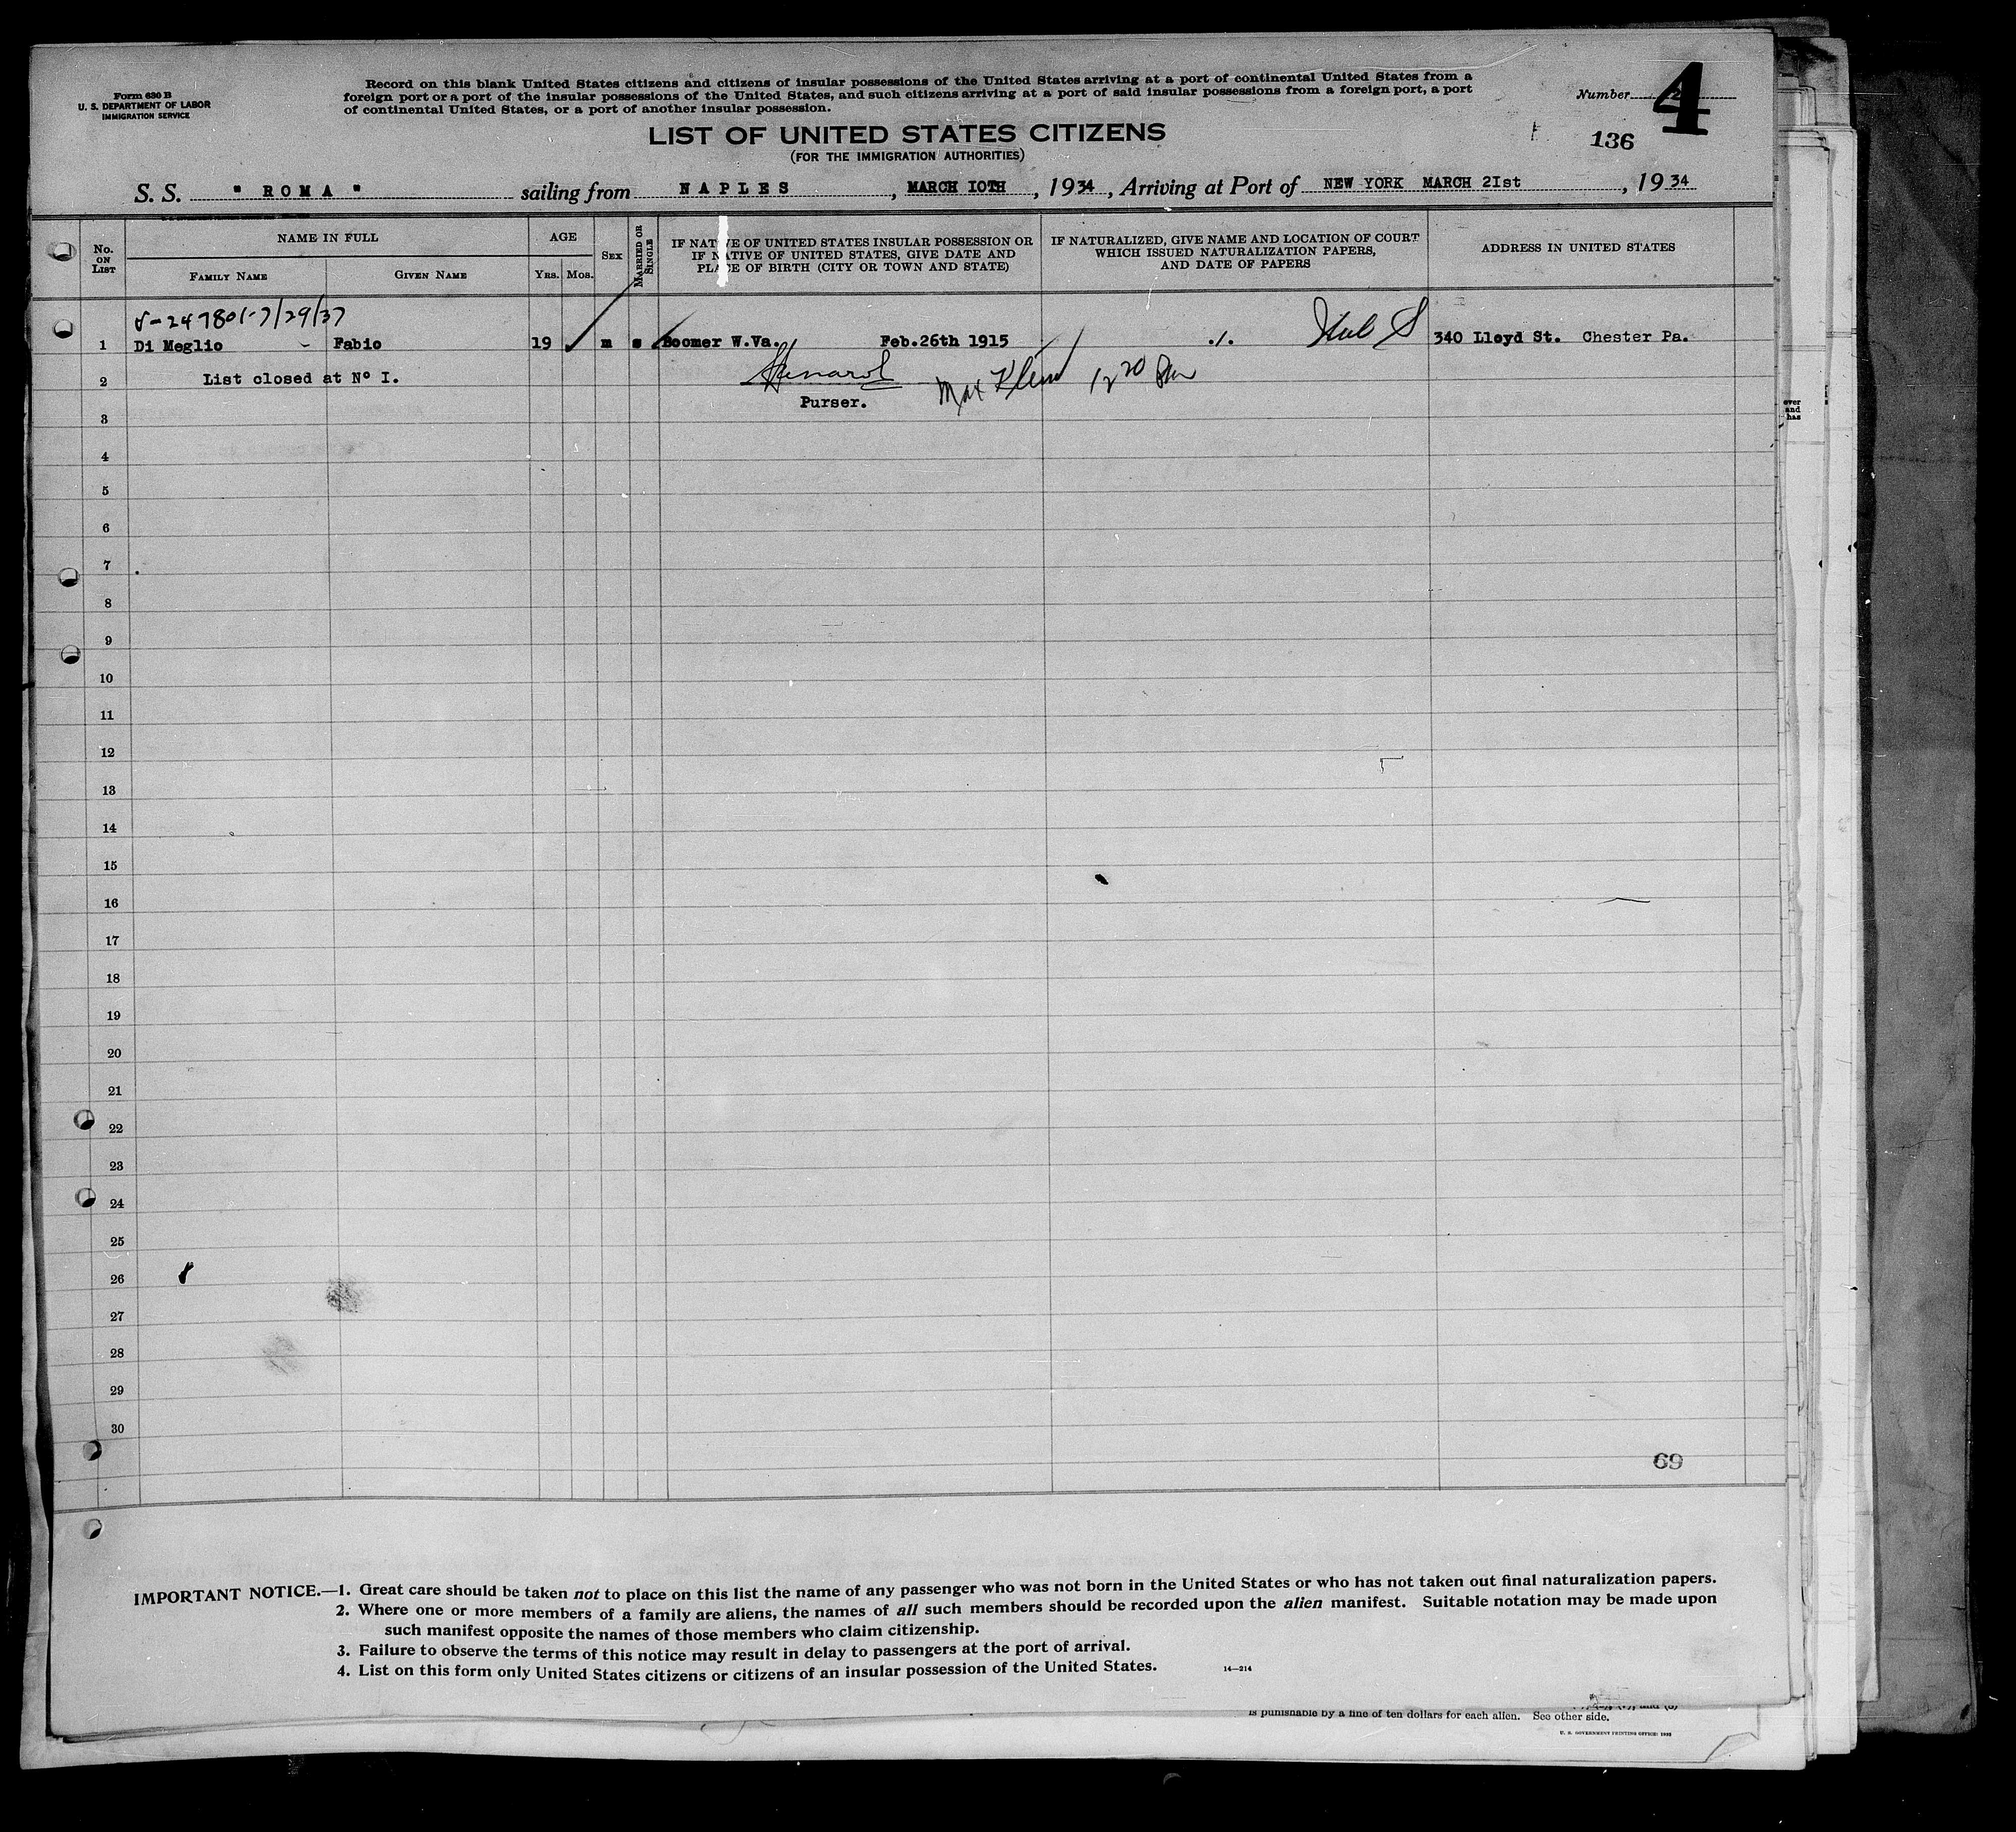 Form 630 B
U. S. DEPARTMENT OF LABOR
IMMIGRATION SERVICE
Record on this blank United States citizens and citizens of insular possessions of the United States arriving at a port of continental United States from a
foreign port or a port of the insular possessions of the United States, and such citizens arriving at a port of said insular possessions from a foreign port, a port
of continental United States, or a port of another insular possession.
Number 4
136
LIST OF UNITED STATES CITIZENS
(FOR THE IMMIGRATION AUTHORITIES)
S. S. " ROMA " sailing from NAPLES, MARCH IOTH, 1934, Arriving at Port of NEW YORK MARCH 2Ist, 1934
No. ON LIST
NAME IN FULL
FAMILY NAME GIVEN NAME
AGE
YRS. MOS.
SEX
MARRIED OR SINGLE
IF NATIVE OF UNITED STATES INSULAR POSSESSION OR
IF NATIVE OF UNITED STATES, GIVE DATE AND
PLACE OF BIRTH (CITY OR TOWN AND STATE)
IF NATURALIZED, GIVE NAME AND LOCATION OF COURT
WHICH ISSUED NATURALIZATION PAPERS,
AND DATE OF PAPERS
ADDRESS IN UNITED STATES
247801-7/29/37
1 Di Meglio - Fabio 19 m s Boomer W.Va. Feb.26th 1915 ./. 340 Lloyd St. Chester Pa.
2 List closed at Nº I. Max Klein 12 20
Purser.
3
4
5
6
7
8
9
10
11
12
13
14
15
16
17
18
19
20
21
22
23
24
25
26
27
28
29
30
69
IMPORTANT NOTICE.—1. Great care should be taken not to place on this list the name of any passenger who was not born in the United States or who has not taken out final naturalization papers.
2. Where one or more members of a family are aliens, the names of all such members should be recorded upon the alien manifest. Suitable notation may be made upon
such manifest opposite the names of those members who claim citizenship.
3. Failure to observe the terms of this notice may result in delay to passengers at the port of arrival.
4. List on this form only United States citizens or citizens of an insular possession of the United States.
14—214
is punishable by a fine of ten dollars for each alien. See other side.
U. S. GOVERNMENT PRINTING OFFICE: 1932
ever
and
has